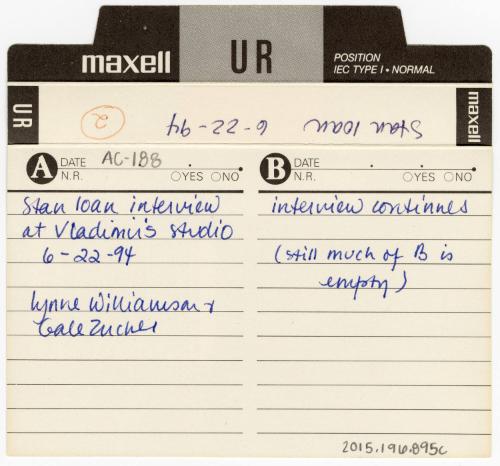 maxell
UR
POSITION
IEC TYPE I • NORMAL
UR
Stan Ioan 6-22-94 2
maxell
A DATE AC-188
N.R. YES NO
Stan Ioan interview
at Vladimir's studio
6-22-94
Lynne Williamson +
Gale Zucker
B DATE
N.R. YES NO
interview continues
(still much of B is
empty)
2015.196.895c